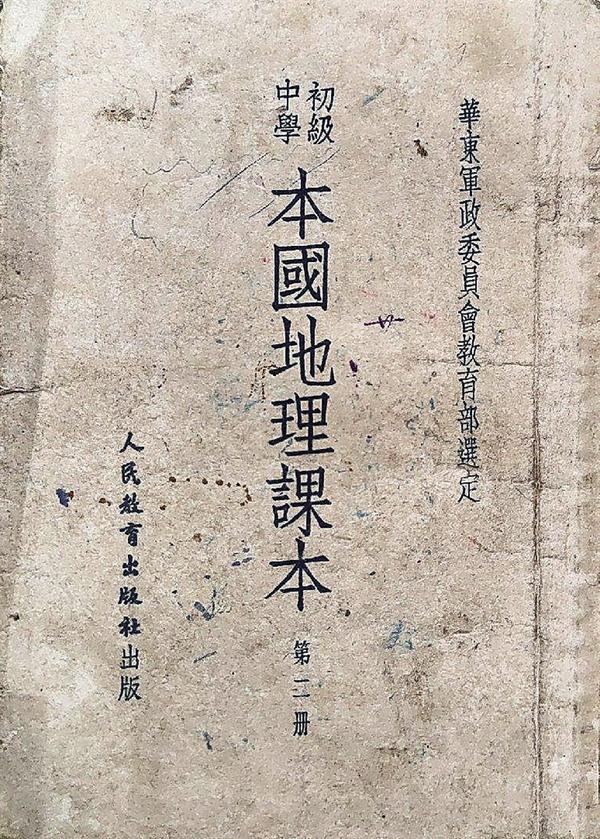 華東軍政委員會教育部選定
初級
中學
本國地理課本
第二册
人民教育出版社出版